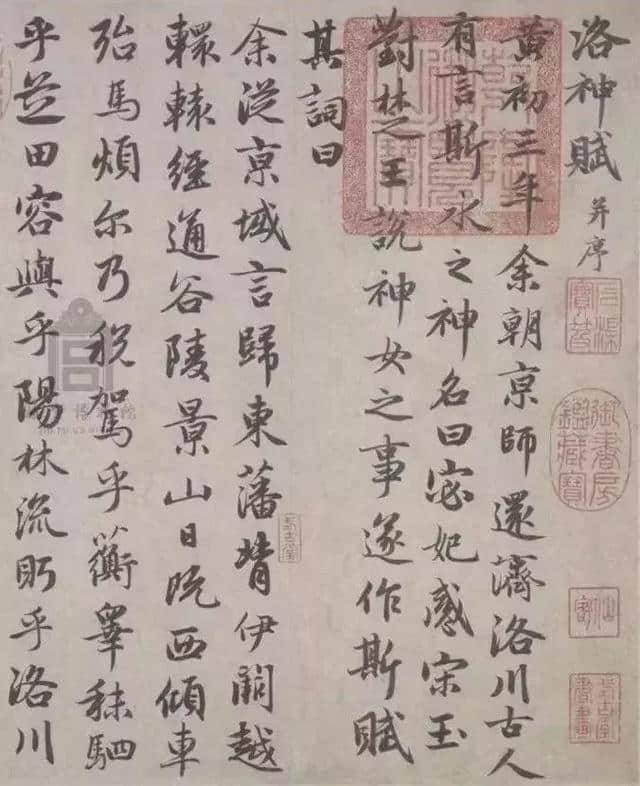 洛神賦并序
黄初三年余朝京師還濟洛川古人
有言斯水之神名曰宓妃感宋玉
對楚王說神女之事遂作斯賦
其詞曰
余從京域言歸東藩背伊闕越
轘轅經通谷陵景山日既西傾車
殆馬煩尔乃税駕乎蘅皋秣駟
乎芝田容與乎陽林流眄乎洛川
石渠寶笈
御書房鑑藏寶